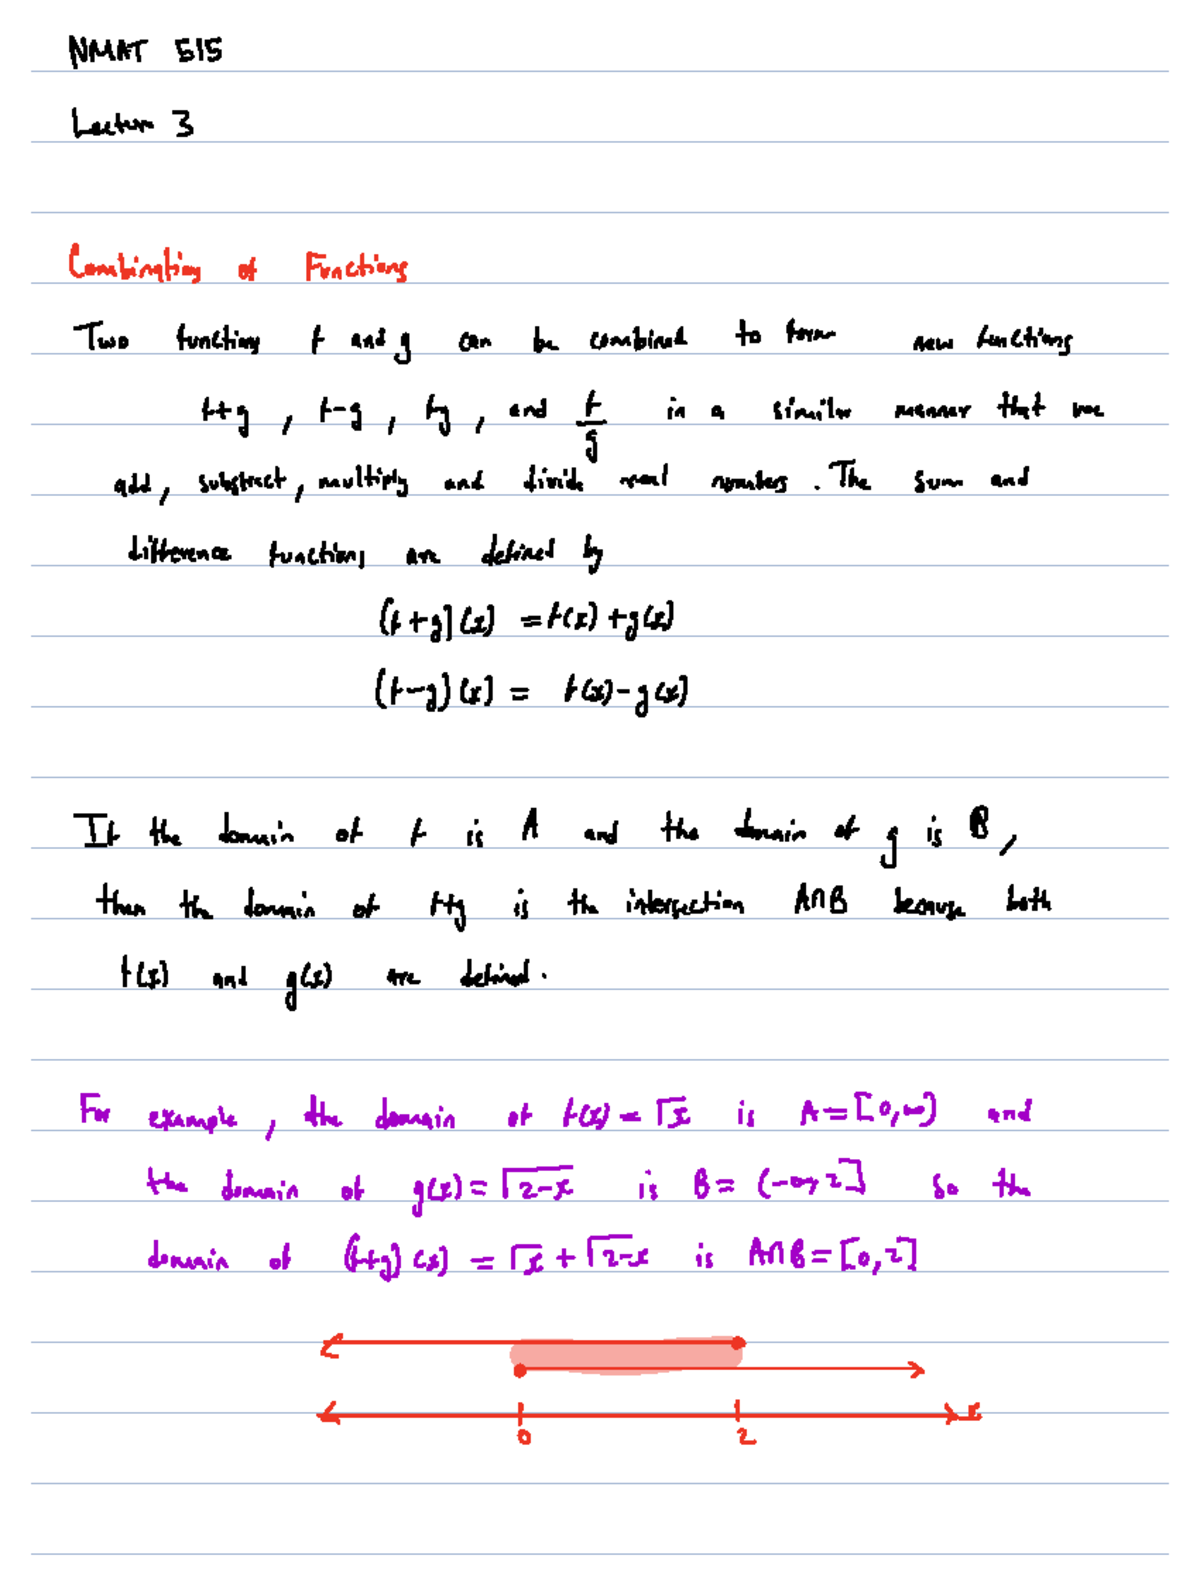 NMAT 515
Lecture 3
Combination of Functions
Two functions f and g can be combined to form new functions
f+g , f-g , fg , and f/g in a similar manner that we
add, substract, multiply and divide real numbers. The sum and
difference functions are defined by
(f+g)(x) = f(x) + g(x)
(f-g)(x) = f(x) - g(x)
If the domain of f is A and the domain of g is B,
then the domain of f+g is the intersection A∩B because both
f(x) and g(x) are defined.
For example, the domain of f(x) = √x is A = [0,∞) and
the domain of g(x) = √2-x is B = (-∞, 2] So the
domain of (f+g)(x) = √x + √2-x is A∩B = [0,2]
x
0 2